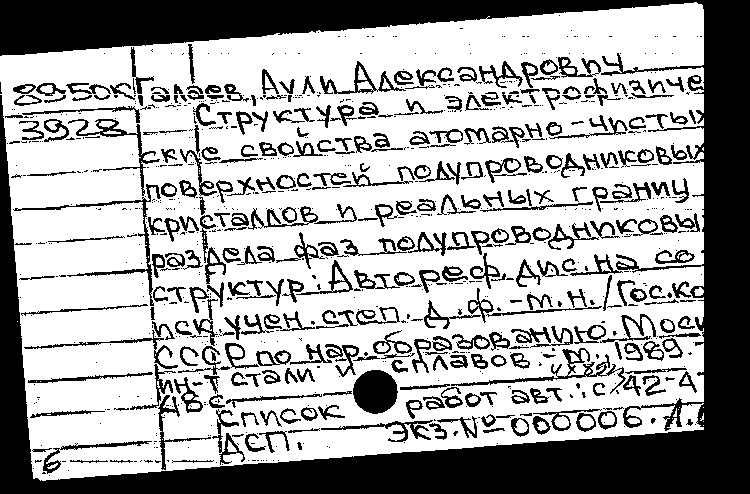 8950К Галаев, Аули Александрович.
3928 Структура и электрофизиче
ские свойства атомарно-чистых
поверхностей полупроводниковых
кристаллов и реальных границ
раздела фаз полупроводниковых
структур: Автореф. дис. на со-
иск. учен. степ. д.ф.-м.н./Гос.ко
СССР по нар. образованию. Моск
ин-т стали и сплавов.-М., 1989.-
48 с.
Список работ авт.: с. 42-4
ДСП. Экз.№ 000006.
6